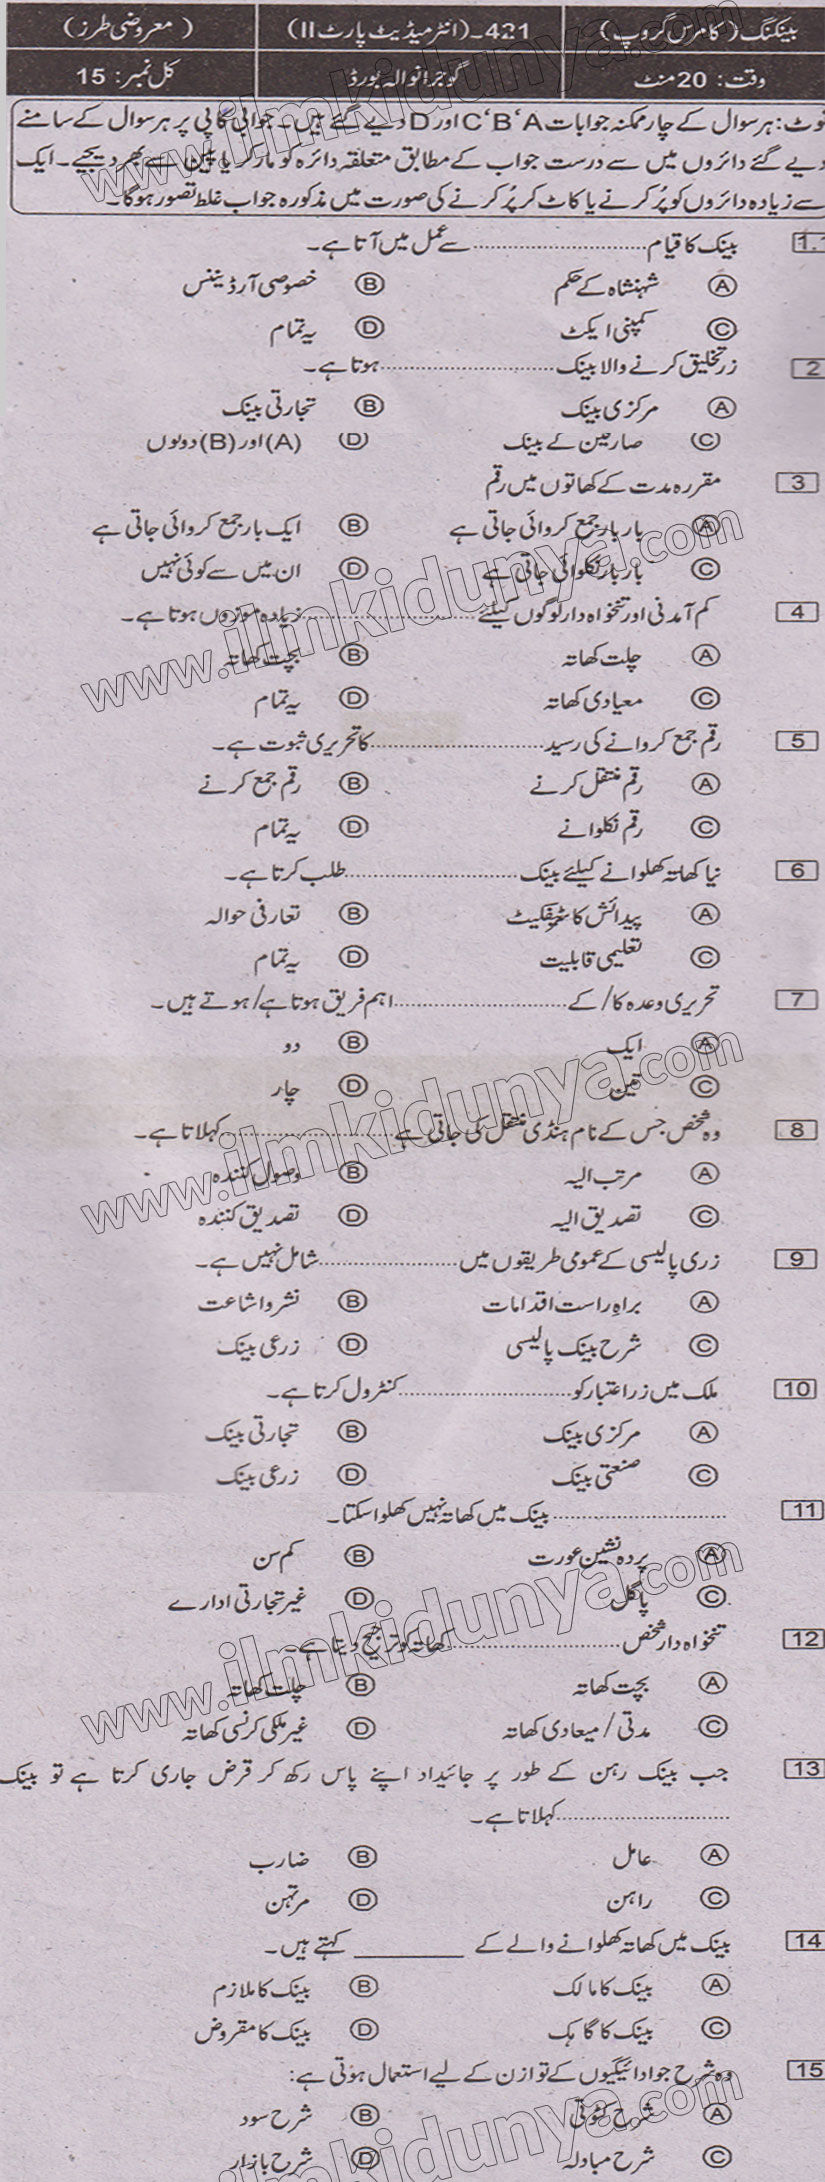 بینکنگ (کامرس گروپ) 421۔ (انٹرمیڈیٹ پارٹ II) (معروضی طرز)
وقت: 20 منٹ گوجرانوالہ بورڈ کل نمبر: 15
نوٹ: ہر سوال کے چار ممکنہ جوابات A‘B‘C اور D دیے گئے ہیں۔ جوابی کاپی پر ہر سوال کے سامنے
دیے گئے دائروں میں سے درست جواب کے مطابق متعلقہ دائرہ کو مارکر یا پین سے بھر دیجیے۔ ایک
سے زیادہ دائروں کو پُر کرنے یا کاٹ کر پُر کرنے کی صورت میں مذکورہ جواب غلط تصور ہوگا۔
1.1 بینک کا قیام .................... سے عمل میں آتا ہے۔
(A) شہنشاہ کے حکم (B) خصوصی آرڈیننس
(C) کمپنی ایکٹ (D) یہ تمام
2 زر تخلیق کرنے والا بینک .................... ہوتا ہے۔
(A) مرکزی بینک (B) تجارتی بینک
(C) صارفین کے بینک (D) (A) اور (B) دونوں
3 مقررہ مدت کے کھاتوں میں رقم
(A) بار بار جمع کروائی جاتی ہے (B) ایک بار جمع کروائی جاتی ہے
(C) بار بار نکلوائی جاتی ہے (D) ان میں سے کوئی نہیں
4 کم آمدنی اور تنخواہ دار لوگوں کیلئے .................... زیادہ موزوں ہوتا ہے۔
(A) چلت کھاتہ (B) بچت کھاتہ
(C) معیادی کھاتہ (D) یہ تمام
5 رقم جمع کروانے کی رسید .................... کا تحریری ثبوت ہے۔
(A) رقم منتقل کرنے (B) رقم جمع کرنے
(C) رقم نکلوانے (D) یہ تمام
6 نیا کھاتہ کھلوانے کیلئے بینک .................... طلب کرتا ہے۔
(A) پیدائش کا سرٹیفکیٹ (B) تعارفی حوالہ
(C) تعلیمی قابلیت (D) یہ تمام
7 تحریری وعدہ کا/ کے .................... اہم فریق ہوتا ہے/ ہوتے ہیں۔
(A) ایک (B) دو
(C) تین (D) چار
8 وہ شخص جس کے نام ہنڈی منتقل کی جاتی ہے .................... کہلاتا ہے۔
(A) مرتب الیہ (B) وصول کنندہ
(C) تصدیق الیہ (D) تصدیق کنندہ
9 زری پالیسی کے عمومی طریقوں میں .................... شامل نہیں ہے۔
(A) براہِ راست اقدامات (B) نشر و اشاعت
(C) شرح بینک پالیسی (D) زرعی بینک
10 ملک میں زر اعتبار کو .................... کنٹرول کرتا ہے۔
(A) مرکزی بینک (B) تجارتی بینک
(C) صنعتی بینک (D) زرعی بینک
11 .................... بینک میں کھاتہ نہیں کھلوا سکتا۔
(A) پردہ نشین عورت (B) کم سن
(C) پاگل (D) غیر تجارتی ادارے
12 تنخواہ دار شخص .................... کھاتہ کو ترجیح دیتا ہے۔
(A) بچت کھاتہ (B) چلت کھاتہ
(C) مدتی / میعادی کھاتہ (D) غیر ملکی کرنسی کھاتہ
13 جب بینک رہن کے طور پر جائیداد اپنے پاس رکھ کر قرض جاری کرتا ہے تو بینک
.................... کہلاتا ہے۔
(A) عامل (B) ضارب
(C) راہن (D) مرتہن
14 بینک میں کھاتہ کھلوانے والے کے ________ کہتے ہیں۔
(A) بینک کا مالک (B) بینک کا ملازم
(C) بینک کا گاہک (D) بینک کا مقروض
15 وہ شرح جو ادائیگیوں کے توازن کے لیے استعمال ہوتی ہے:
(A) شرح کٹوتی (B) شرح سود
(C) شرح مبادلہ (D) شرح بازار
www.ilmkidunya.com
www.ilmkidunya.com
www.ilmkidunya.com
www.ilmkidunya.com
www.ilmkidunya.com